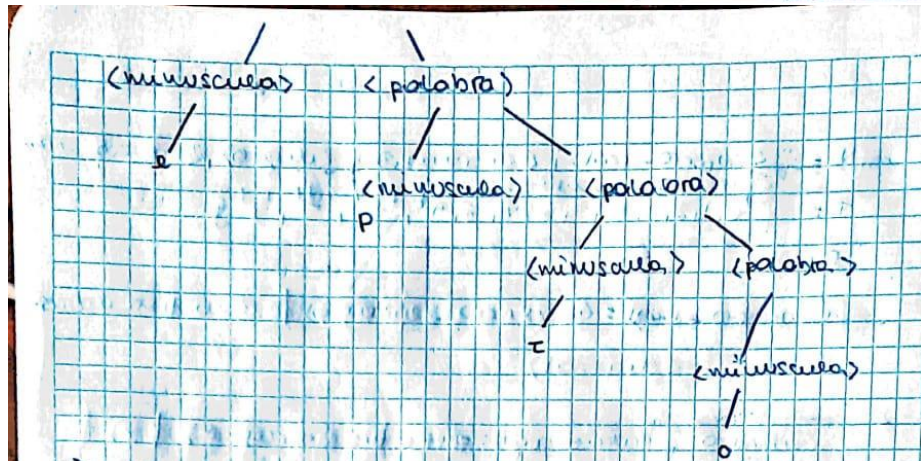 <minuscula> <palabra>
e
<minuscula> <palabra>
p
<minuscula> <palabra>
τ
<minuscula>
o